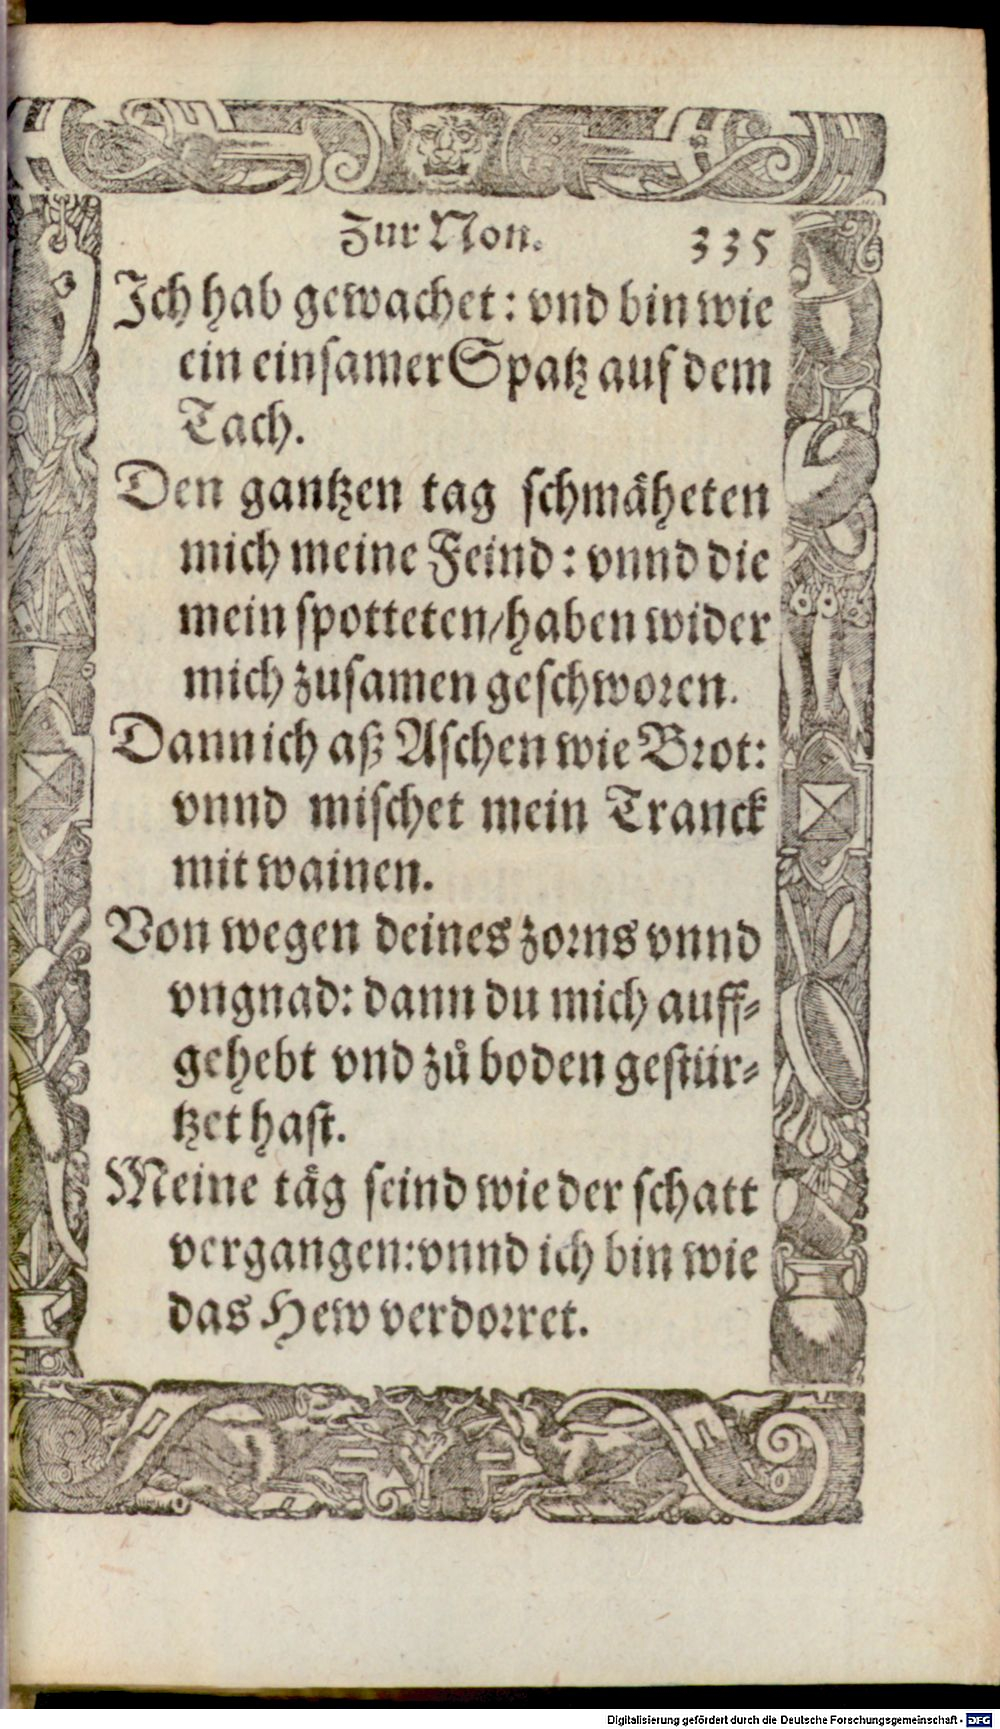 Zur Non. 335
Ich hab gewachet: vnd bin wie
ein einsamer Spatz auf dem
Tach.
Den gantzen tag schmäheten
mich meine Feind: vnnd die
mein spotteten/haben wider
mich zusamen geschworen.
Dann ich aß Aschen wie Brot:
vnnd mischet mein Tranck
mit wainen.
Von wegen deines zorns vnnd
vngnad: dann du mich auff-
gehebt vnd zů boden gestür-
tzet hast.
Meine täg seind wie der schatt
vergangen: vnnd ich bin wie
das Hew verdorret.
Digitalisierung gefördert durch die Deutsche Forschungsgemeinschaft - DFG